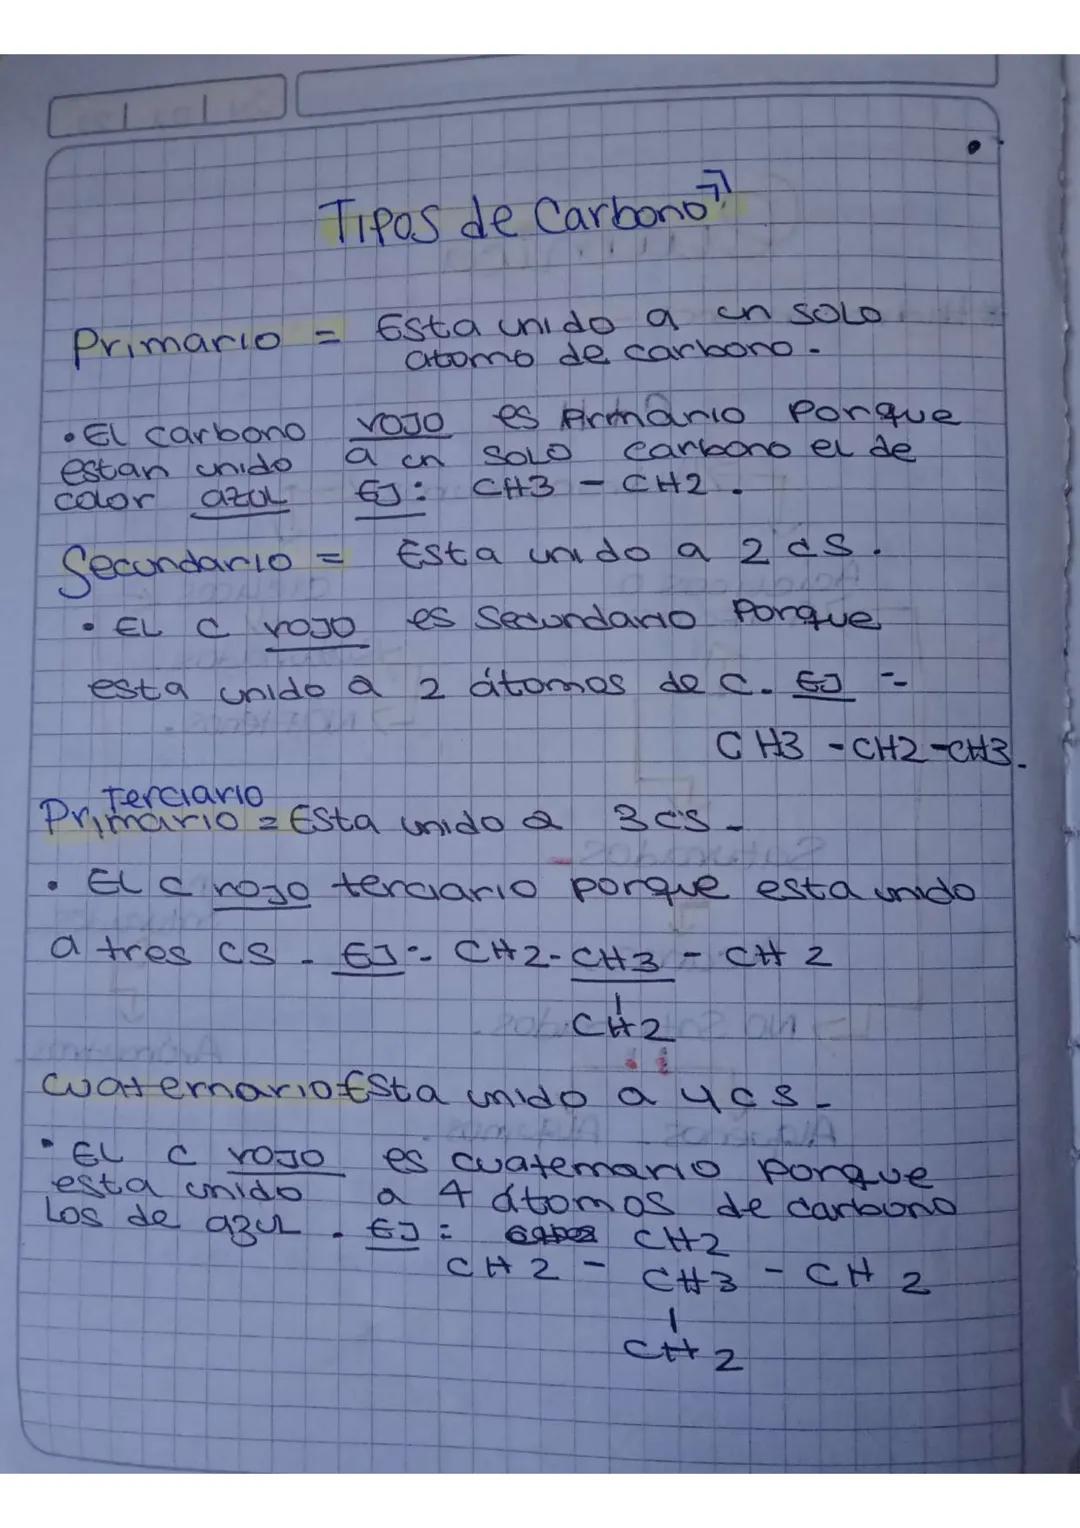 Tipos de Carbono
Primario = Esta unido a un solo
atomo de carbono.
• El carbono rojo es Primario porque
estan unido a un solo carbono el de
color azul EJ: CH3 - CH2.
Secundario = Esta unido a 2 cs.
• EL C rojo es Secundario Porque
esta unido a 2 átomos de C. EJ =
CH3 - CH2 - CH3.
Terciario
Primario = Esta unido a 3 cs.
• EL C rojo terciario porque esta unido
a tres CS. EJ: CH2 - CH3 - CH2
CH2
cuaternario Esta unido a 4 c s.
• EL C rojo es cuaternario porque
esta unido a 4 átomos de carbono
Los de azul. EJ: CH2
CH2 - CH3 - CH2
CH2